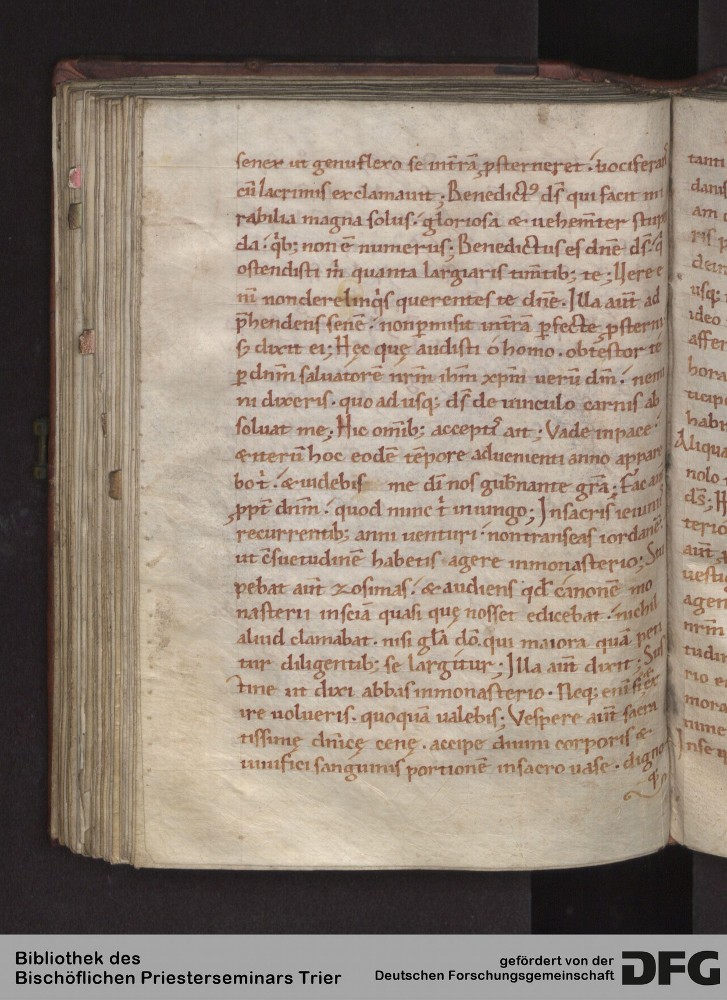 senex ut genuflexo se int̄rā p̱sterneret · uociferans
cū lacrimis exclamauit ; Benedictꝰ d̄s qui facit mi
rabilia magna solus · gloriosa & uehem̄ter stupen
da · q̇b; non ē numerus ; Benedictus es dn̄e d̄s · q̇
ostendisti m̄ quanta largiaris tim̄tib; te ; Uere e
ni̅ non derelinq̇s querentes te dn̄e . Illa aut̄ ad
p̄hendens senē · non ꝑmisit int̄rā ꝑfecte p̱sterni
s; dixit ei ; Hec quę audisti o homo . obtestor te
ꝑ dn̄m saluatorē nr̄m ihm̄ xp̄m uerū dm̄ · nemi
ni dixeris . quo ad usq; d̄s de uinculo carnis ab
soluat me ; Hic om̄ib; acceptis ait ; Vade in pace ·
& iterū hoc eodē tēpore aduenienti anno appare
bo t̄ · & uidebis me dī nos gub̄nante gr̄a ; Fac aut̄
ꝓpt̄ dn̄m · quod nunc t̄ iniungo ; In sacris ieiuniis
recurrentib; anni uenturi · non transeas iordanē ·
ut c̄suetudinē habetis agere in monasterio ; Stu
pebat aut̄ zosimas · & audiens qd̄ canonē mo
nasterii insciā quasi quę nosset edicebat · nichil
aliud clamabat . nisi gl̄a dō qui maiora quā peti
tur diligentib; se largitur ; Illa aut̄ dixit ; Sus
tine ut dixi abba in monasterio . Neq; eni̅ si ex
ire uolueris . quoquā ualebis ; Vespere aut̄ sacra
tissimę dn̄icę cenę . accipe diuini corporis &
uiuifici sanguinis portionē in sacro uase . digno
tanti
am
ris p
usq;
ideo
affer
hora
habi
Aliqua
nolo
d̄s ; H
terio
aut̄
uesti
agen
nr̄m
tudin
rio
mora
Bibliothek des
Bischöflichen Priesterseminars Trier
gefördert von der
Deutschen Forschungsgemeinschaft
DFG